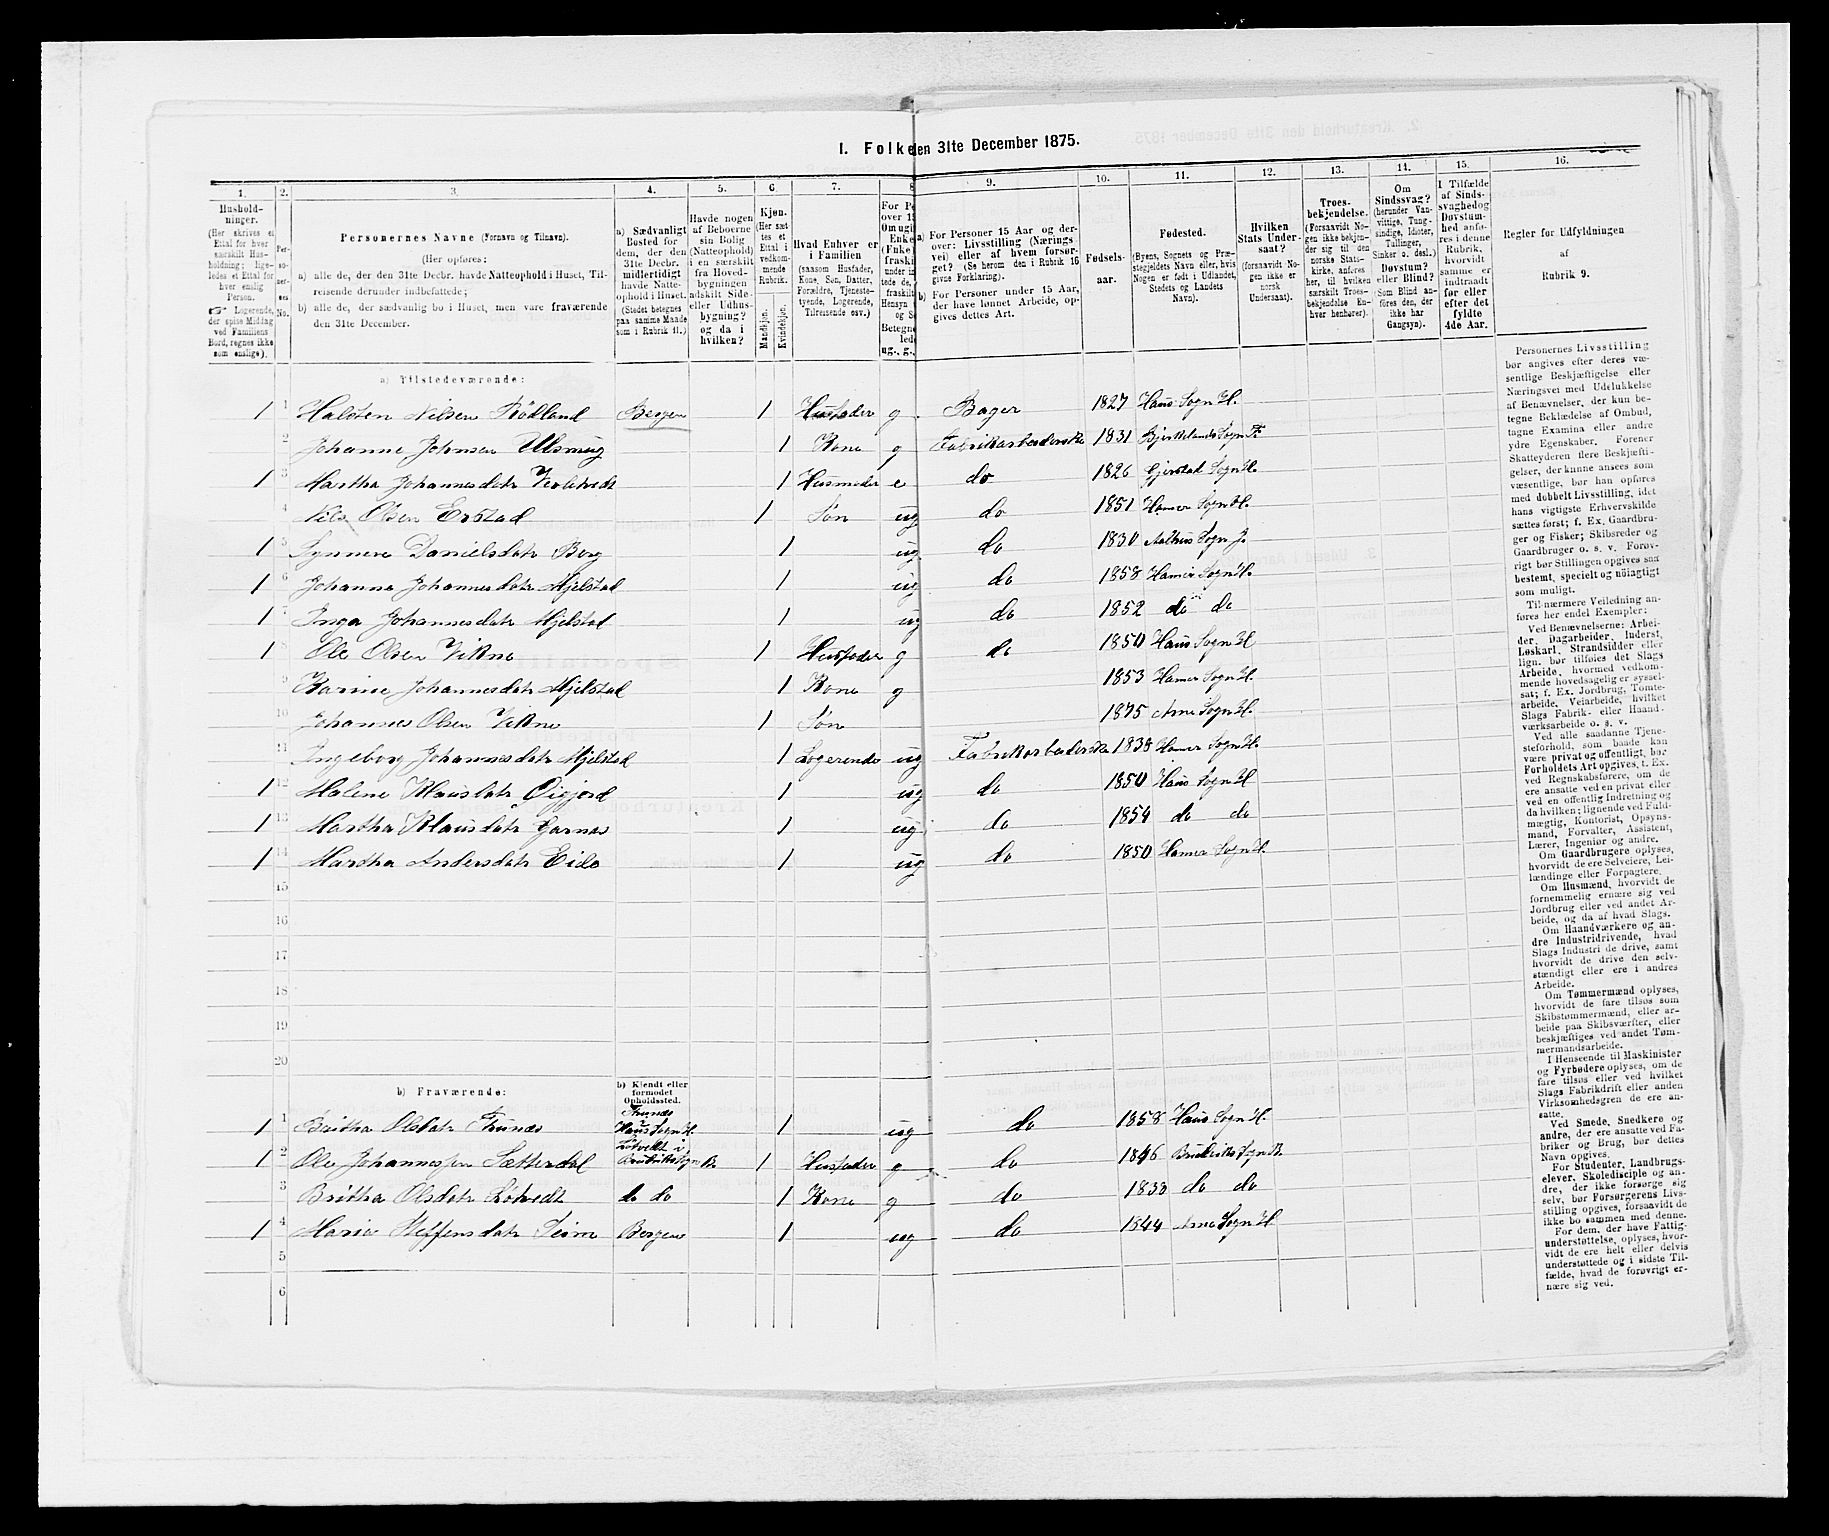 I. Folke
en 31te December 1875.
1. 2. 3. 4. 5. 6. 7. 8 9. 10. 11. 12. 13. 14. 15. 16.
Hushold-
ninger.
(Her skrives et
Ettal for hver
særskilt Hus-
holdning; lige-
ledes et Ettal for
hver enslig
Person.
☞ Logerende,
der spise Middag
ved Familiens
Bord, regnes ikke
som enslige).
Per-
so-
ner-
nes
No.
Personernes Navne (Fornavn og Tilnavn).
(Her opføres:
a) alle de, der den 31te Decbr. havde Natteophold i Huset, Til-
reisende derunder indbefattede;
b) alle de, der sædvanlig bo i Huset, men vare fraværende
den 31te December.
a) Sædvanligt
Bosted for
dem, der den
31te Decbr.
midlertidigt
havde Natte-
ophold i Huset.
(Stedet betegnes
paa samme Maade
som i Rubrik 11.)
Havde nogen
af Beboerne
sin Bolig
(Natteophold)
i en særskilt
fra Hoved-
bygningen
adskilt Side-
eller Udhus-
bygning?
og da i
hvilken?
Kjøn.
(Her sæt-
tes et
Ettal i
vedkom-
mende
Rubrik.
Mandkjøn.
Kvindekjøn.
Hvad Enhver er
i Familien
(saasom Husfader,
Kone, Søn, Datter,
Forældre, Tjeneste-
tyende, Logerende,
Tilreisende osv.)
For Pe
over 15
Om ugi
Enke
(Enke
fraski
under in
tede de,
fraskilt
Hensyn
og Se
Betegne
lede
ug., g.,
a) For Personer 15 Aar og der-
over: Livsstilling (Nærings-
vei) eller af hvem forsør-
get? (Se herom den i Rubrik 16
givne Forklaring).
b) For Personer under 15 Aar,
der have lønnet Arbeide, op-
gives dettes Art.
Fødsels-
aar.
Fødested.
(Byens, Sognets og Præ-
stegjeldets Navn eller, hvis
Nogen er født i Udlandet,
Stedets og Landets
Navn).
Hvilken
Stats Under-
saat?
(forsaavidt No-
gen ikke er
norsk
Undersaat).
Troes-
bekjendelse.
(Forsaavidt No-
gen ikke bekjen-
der sig til den
norske Stats-
kirke, anføres
her, til hvilken
særskilt Troes-
bekjendelse En-
hver henhører).
Om
Sindssvag?
(herunder Van-
vittige, Tung-
sindige, Idioter,
Tullinger,
Sinker o. desl.)
Døvstum?
eller Blind?
(Som Blind an-
føres den, der
ikke har
Gangsyn).
I Tilfælde
af Sinds-
svaghed og
Døvstum-
hed anfø-
res i denne
Rubrik,
hvorvidt
samme er
indtraadt
før eller
efter det
fyldte
4de Aar.
Regler for Udfyldningen
af
Rubrik 9.
a) Tilstedeværende:
1 1 Halsten Nilsen Rödland Bergen 1 Husfader g Bager 1827 Haus Sogn H.
2 Johanne Johnsen 1 Kone g Fabrikarbeiderske 1831 Sogn F.
1 3 Martha Johannesdatr 1 Husmoder e do 1826 Gjerstad Sogn H.
4 Nils Olsen Erstad 1 Søn ug do 1851 Hamer Sogn H.
1 5 Synneve Danielsdatr Borg 1 ug do 1830 Aalhus Sogn J.
1 6 Johanna Johannesdatr Mjelstad 1 ug do 1858 Hamer Sogn H.
1 7 Inga Johannesdatr Mjelstad 1 ug do 1852 do do
1 8 Ole Olsen Vikne 1 Husfader g do 1850 Haus Sogn H
9 Karine Johannesdatr Mjelstad 1 Kone g 1853 Hamer Sogn H.
10 Johannes Olsen Vikne 1 Søn 1875 Arne Sogn H.
11 Ingeborg Johannesdatr Mjelstad 1 Logerende ug Fabrikarbeiderske 1838 Hamer Sogn H.
1 12 Malene Klausdatr 1 ug do 1850 Haus Sogn H
1 13 Martha Klausdatr Garnæs 1 ug do 1854 do do
1 14 Martha Andersdatr Eide 1 ug do 1850 Hamer Sogn H.
15
16
17
18
19
20
b) Fraværende:
b) Kjendt eller
formodet
Opholdssted.
1 1 Britha Olsdatr Trunæs Trunæs Haus Sogn H. 1 ug do 1858 Haus Sogn H.
1 2 Ole Johannessen Sætterdal Lötvedt i Bruviks Sogn B. 1 Husfader g do 1846 Bruviks Sogn B
3 Britha Olsdatr Lötvedt do do 1 Kone g do 1838 do do
1 4 Maria Steffensdatr Seim Bergen 1 ug do 1844 Arne Sogn H
5
6
Personernes Livsstilling
bør angives efter deres væ-
sentlige Beskjæftigelse eller
Næringsvei med Udelukkelse
af Benævnelser, der kun be-
tegne Beklædelse af Ombud,
tagne Examina eller andre
ydre Egenskaber. Forener
Skatteyderen flere Beskjæfti-
gelser, der kunne ansees som
væsentlige, bør han opføres
med dobbelt Livsstilling, idet
hans vigtigste Erhvervskilde
sættes først; f. Ex. Gaardbru-
ger og Fisker; Skibsreder og
Gaardbruger o. s. v. Forøv-
rigt bør Stillingen opgives saa
bestemt, specielt og nøiagtigt
som muligt.
Til nærmere Veiledning an-
føres her endel Exempler:
Ved Benævnelserne: Arbei-
der, Dagarbeider, Inderst,
Løskarl, Strandsidder eller
lign. bør tilføies det Slags
Arbeide, hvormed vedkom-
mende hovedsagelig er syssel-
sat; f. Ex. Jordbrug, Tomte-
arbeide, Veiarbeide, hvilket
Slags Fabrik- eller Haand-
værksarbeide o. s. v.
Ved alle saadanne Tjene-
steforhold, som baade kan
være privat og offentligt, bør
Forholdets Art opgives, f. Ex.
ved Regnskabsførere, om de
ere ansatte ved en privat eller
ved en offentlig Indretning og
da hvilken; lignende ved Fuld-
mægtig, Kontorist, Opsyns-
mand, Forvalter, Assistent,
Lærer, Ingeniør og andre.
Om Gaardbrugere oplyses,
hvorvidt de ere Selveiere, Lei-
lændinge eller Forpagtere.
Om Husmænd, hvorvidt de
fornemmelig ernære sig ved
Jordbrug eller ved andet Ar-
beide, og da af hvad Slags.
Om Haandværkere og an-
dre Industridrivende, hvad
Slags Industri de drive, samt
hvorvidt de drive den selv-
stændigt eller ere i andres
Arbeide.
Om Tømmermænd oplyses,
hvorvidt de fare tilsøs som
Skibstømmermænd, eller ar-
beide paa Skibsværfter, eller
beskjæftiges ved andet Tøm-
mermandsarbeide.
I Henseende til Maskinister
og Fyrbødere oplyses, om de
fare tilsøs eller ved hvilket
Slags Fabrikdrift eller anden
Virksomhedsgren de ere an-
satte.
Ved Smede, Snedkere og
andre, der ere ansatte ved Fa-
briker og Brug, bør dettes
Navn opgives.
For Studenter, Landbrugs-
elever, Skoledisciple og an-
dre, der ikke forsørge sig
selv, bør Forsørgerens Livs-
stilling opgives, forsaavidt de
ikke bo sammen med denne.
For dem, der have Fattig-
understøttelse, oplyses, hvor-
vidt de ere helt eller delvis
understøttede og i sidste Til-
fælde, hvad de forøvrigt er-
nære sig ved.